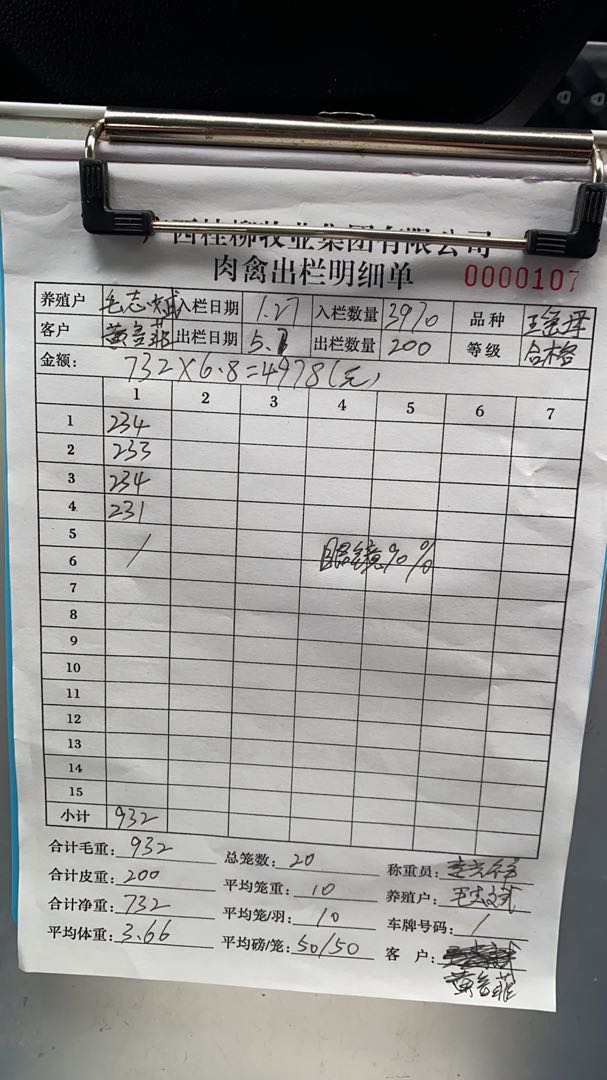 西桂柳牧业集团有限公司
肉禽出栏明细单 0000107
养殖户 毛志斌 入栏日期 1.27 入栏数量 3970 品种
客户 黄金菲 出栏日期 5. 出栏数量 200 等级 合格
金额: 732×6.8=4978(元)
1 2 3 4 5 6 7
1 234
2 233
3 234
4 231
5 /
6 眼镜90%
7
8
9
10
11
12
13
14
15
小计 932
合计毛重: 932 总笼数: 20 称重员:
合计皮重: 200 平均笼重: 10 养殖户: 毛志斌
合计净重: 732 平均笼/羽: 10 车牌号码: /
平均体重: 3.66 平均磅/笼: 50/50 客户:
黄金菲